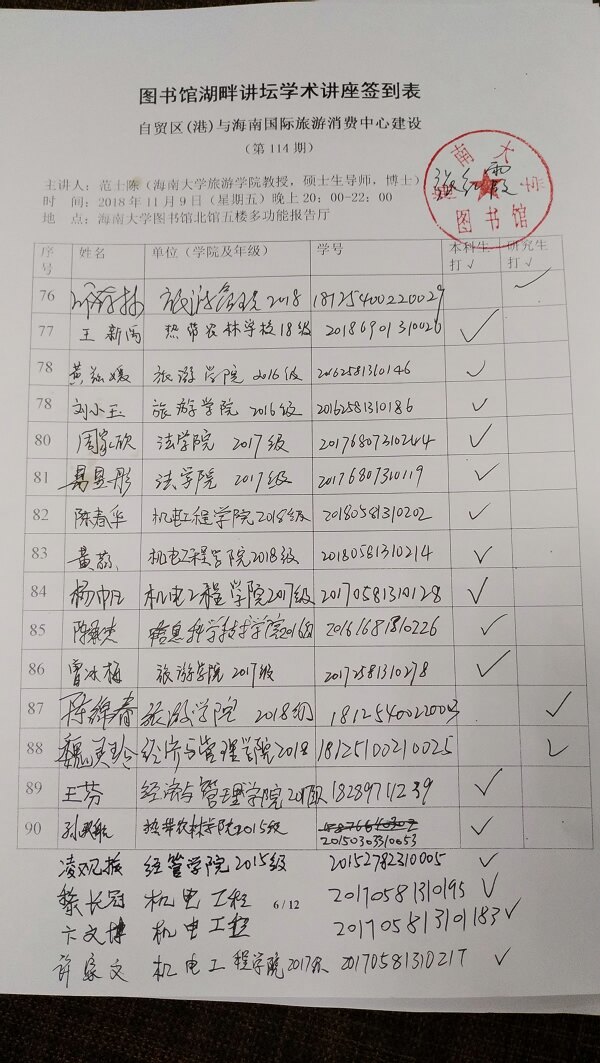 图书馆湖畔讲坛学术讲座签到表
自贸区(港)与海南国际旅游消费中心建设
(第 114 期)
主讲人：范士陈（海南大学旅游学院教授，硕士生导师，博士）
时 间：2018 年 11 月 9 日（星期五）晚上 20：00-22：00
地 点：海南大学图书馆北馆五楼多功能报告厅
南大
图书馆
序号 姓名 单位（学院及年级） 学号 本科生打√ 研究生打√
76 旅游学院 2018 18125400220029 √
77 王新雨 热带农林学校18级 20186901310026 √
78 黄 媛 旅游学院 2016级 20162581310146 √
78 刘小玉 旅游学院 2016级 20162581310186 √
80 周家欣 法学院 2017级 20176807310244 √
81 易显彤 法学院 2017级 20176807310119 √
82 陈春华 机电工程学院2018级 20180581310202 √
83 黄 机电工程学院2018级 20180581310214 √
84 杨 机电工程学院2017级 20170581310128 √
85 陈 信息科学技术学院2016级 20161681810226 √
86 曾冰梅 旅游学院 2017级 20172581310278 √
87 陈锦春 旅游学院 2018级 1812540022003 √
88 魏美玲 经济与管理学院2018 18125100210025 √
89 王芬 经济与管理学院2017级 18289711239 √
90 孙 热带农林学院2015级 20150303310053 √
凌 振 经管学院2015级 20152782310005 √
黎长冠 机电工程 20170581310195 √
6 / 12
卞文博 机电工程 20170581310183 √
许家文 机电工程学院2017级 20170581310217 √